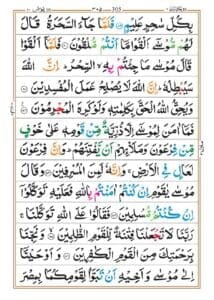 بِكُلِّ سٰحِرٍ عَلِيْمٍ ۝ فَلَمَّا جَآءَ السَّحَرَةُ قَالَ
لَهُمْ مُّوْسٰٓى اَلْقُوْا مَاۤ اَنْتُمْ مُّلْقُوْنَ ۝ فَلَمَّاۤ اَلْقَوْا
قَالَ مُوْسٰى مَا جِئْتُمْ بِهِ ۙ السِّحْرُ ؕ اِنَّ اللّٰهَ
سَيُبْطِلُهٗ ؕ اِنَّ اللّٰهَ لَا يُصْلِحُ عَمَلَ الْمُفْسِدِيْنَ ۝
وَيُحِقُّ اللّٰهُ الْحَقَّ بِكَلِمٰتِهٖ وَلَوْ كَرِهَ الْمُجْرِمُوْنَ ۝
فَمَاۤ اٰمَنَ لِمُوْسٰٓى اِلَّا ذُرِّيَّةٌ مِّنْ قَوْمِهٖ عَلٰى خَوْفٍ
مِّنْ فِرْعَوْنَ وَمَلَا۟ئِهِمْ اَنْ يَّفْتِنَهُمْ ؕ وَاِنَّ فِرْعَوْنَ
لَعَالٍ فِى الْاَرْضِ ۚ وَاِنَّهٗ لَمِنَ الْمُسْرِفِيْنَ ۝ وَقَالَ
مُوْسٰى يٰقَوْمِ اِنْ كُنْتُمْ اٰمَنْتُمْ بِاللّٰهِ فَعَلَيْهِ تَوَكَّلُوْۤا
اِنْ كُنْتُمْ مُّسْلِمِيْنَ ۝ فَقَالُوْا عَلَى اللّٰهِ تَوَكَّلْنَا ۚ
رَبَّنَا لَا تَجْعَلْنَا فِتْنَةً لِّلْقَوْمِ الظّٰلِمِيْنَ ۝ وَنَجِّنَا
بِرَحْمَتِكَ مِنَ الْقَوْمِ الْكٰفِرِيْنَ ۝ وَاَوْحَيْنَاۤ
اِلٰى مُوْسٰى وَاَخِيْهِ اَنْ تَبَوَّاٰ لِقَوْمِكُمَا بِمِصْرَ